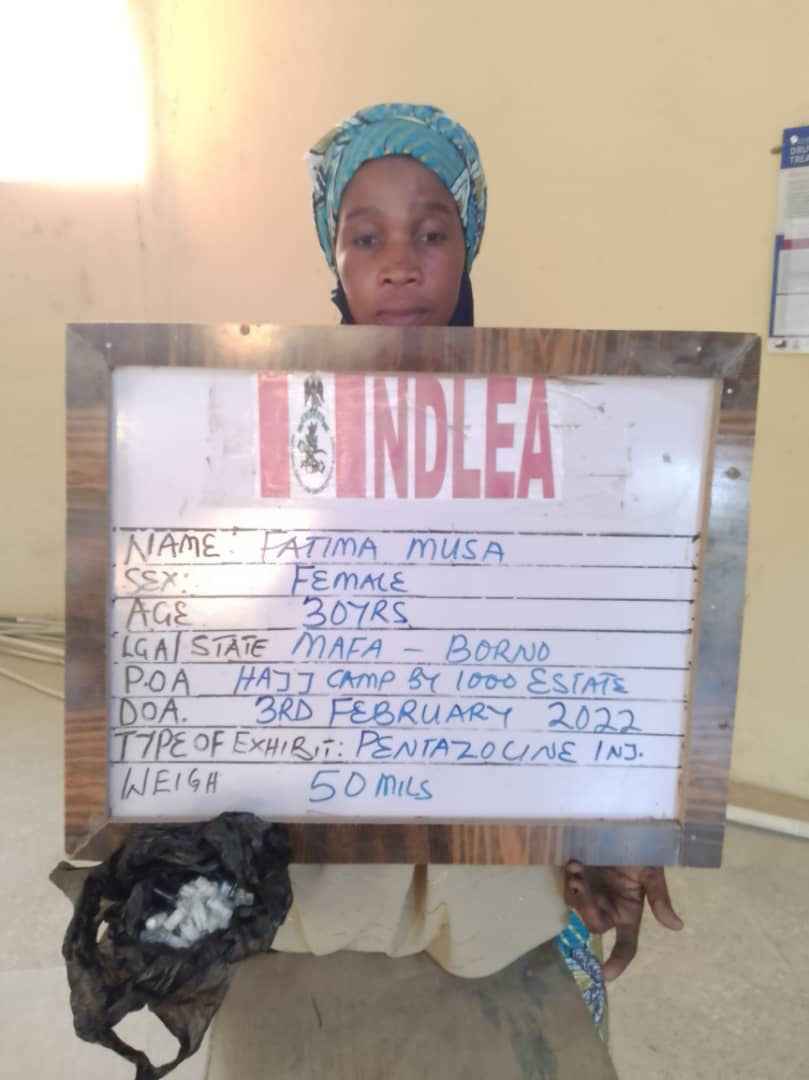 NDLEA
NAME: FATIMA MUSA
SEX: FEMALE
AGE 30YRS
LGA/STATE MAFA - BORNO
P.O.A HAJJ CAMP BY 1000 ESTATE
DOA. 3RD FEBRUARY 2022
TYPE OF EXHIBIT: PENTAZOCINE INJ.
WEIGH 50 MILS
DRU
TREA